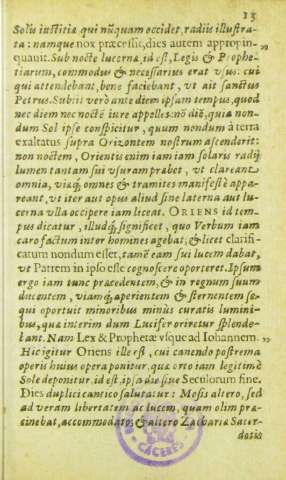 13
Solis iustitiæ qui nũquam occidet, radiis illustra-
ta: namque nox præcessit, dies autem appropin-
quauit. Sub nocte lucerna, id est, Legis & Prophe-
tiarum, commodus & necessarius erat vsus: cui
qui attendebant, bene faciebant, vt ait sanctus
Petrus. Subiis verò ante diem ipsam tempus, quod
nec diem nec noctẽ iure appelles: nõ diẽ, quia non-
dum Sol ipse conspicitur, quum nondum à terra
exaltatus supra Orizontem nostrum ascenderit:
non noctem, Orientis enim iam iam solaris radij
lumen tantam sui vsuram præbet, vt clareant
omnia, viæq́; omnes & tramites manifestè appa-
reant, vt iter aut opus aliud sine laterna aut lu-
cerna vlla occipere iam liceat. ORIENS id tem-
pus dicatur, illudq́; significet, quo Verbum iam
caro factum inter homines agebat; & licet clarifi-
catum nondum esset, tamẽ eam sui lucem dabat,
vt Patrem in ipso esse cognoscere oporteret. Ipsum
ergo iam tunc præcedentem, & in regnum suum
ducentem, viamq́; aperientem & sternentem se-
qui oportuit minoribus minùs curatis lumini-
bus, quæ interim dum Lucifer oriretur splende-
bant. Nam Lex & Prophetæ vsque ad Iohannem.
Hic igitur Oriens ille est, cui canendo postrema
operis huius opera ponitur, quæ orto iam legitimè
Sole deponitur, id est, ipsa die sine Seculorum fine.
Dies duplici cantico salutatur: Mosis altero, sed
ad veram libertatem ac lucem, quam olim præ-
cinebat, accommodato; & altero Zachariæ Sacer-
dotis
CACERES